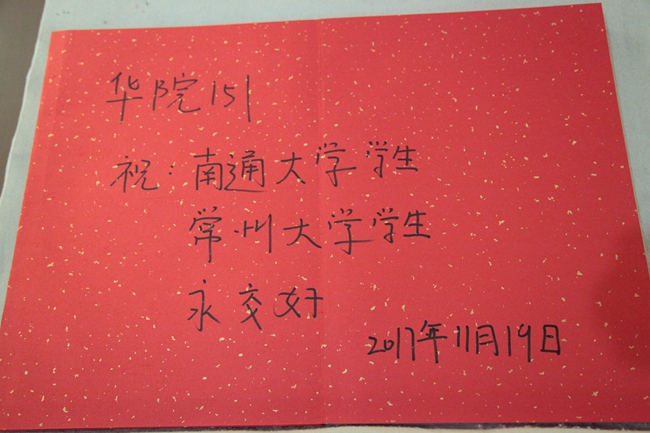 华院151
祝:南通大学学生
常州大学学生
永交好
2017年11月19日